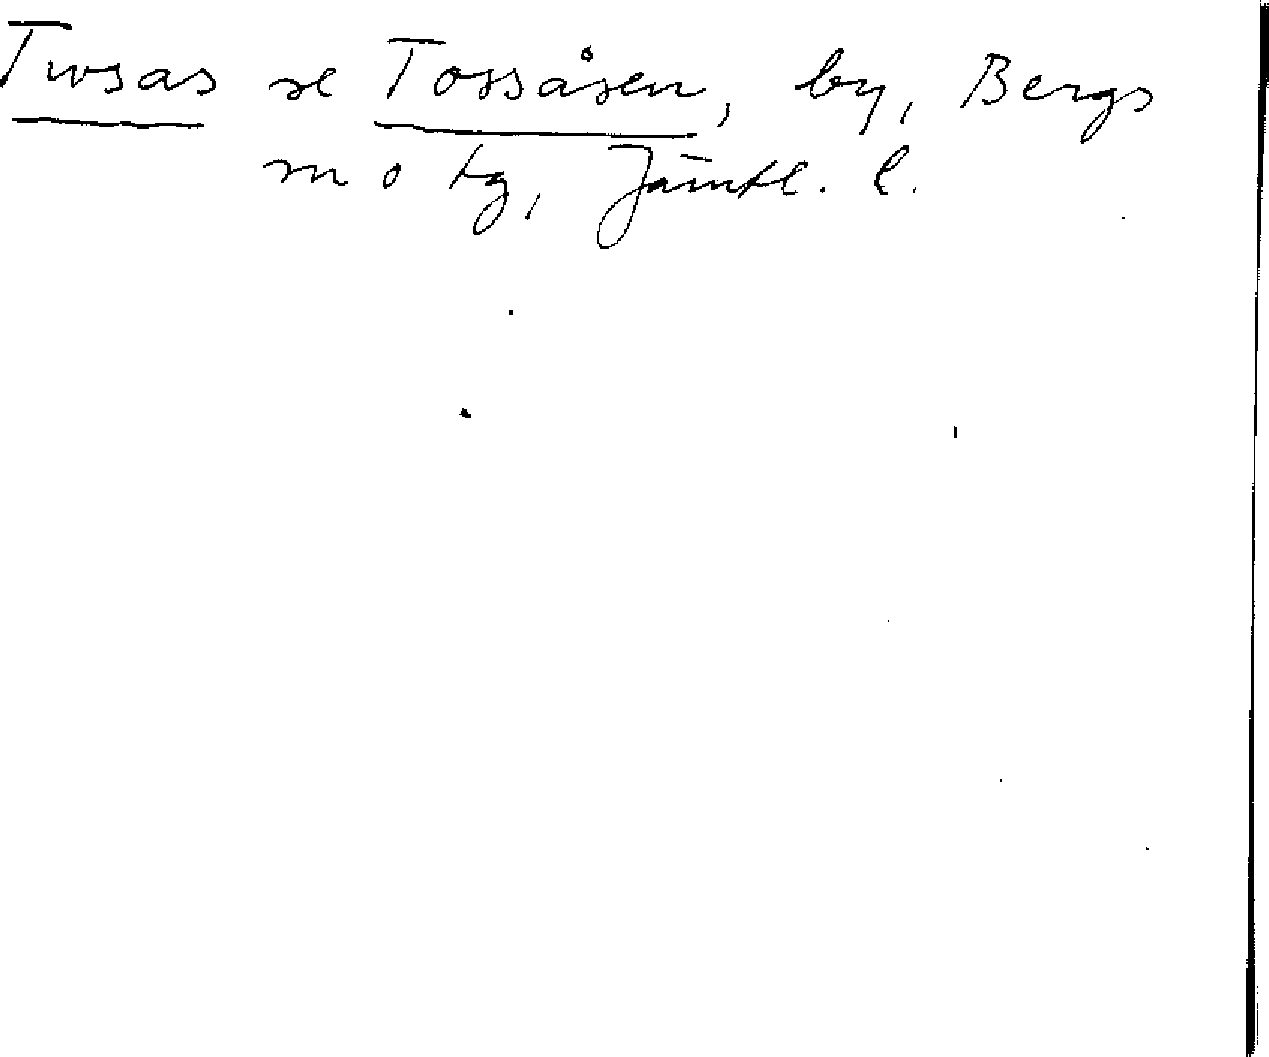 Twsas se Tossåsen, by, Bergs
sn o tg, Jämtl. l.